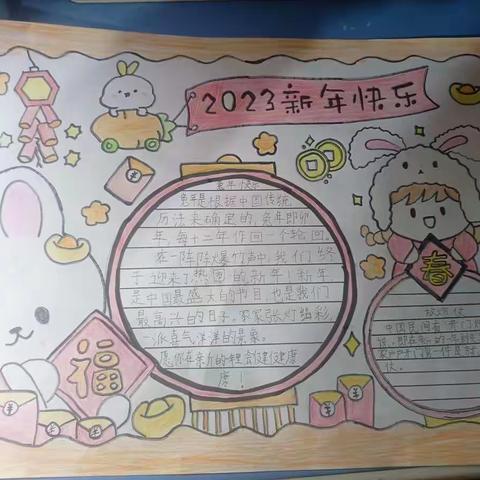 2023新年快乐
兔年快乐
兔年是根据中国传统
历法来确定的,兔年即卯
年,每十二年作同一个轮回
在一阵阵爆竹声中,我们终
于迎来了热闹的新年!新年
是中国最盛大的节日,也是我们
最高兴的日子。家家张灯结彩
一派喜气洋洋的景象。
愿你在新的一年里健健康
康!
福
春
中国民间有"开门